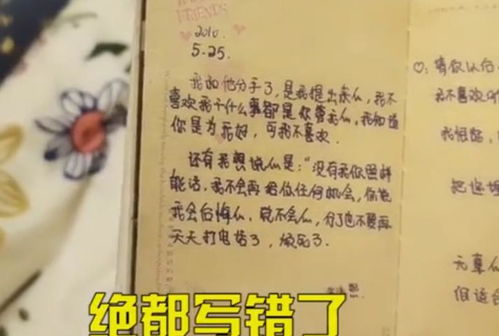 FRIENDS
2010.
5.25.
我和他分手了，是我提出来么，我不
喜欢我干什么事都是你管我么，我知道
你是为我好，可我不喜欢.
还有我想说么是："没有我你照样
能活，我不会再给你任何机会，你说
我会后悔么，我不会么，分了也不要再
天天打电话了，烦死了.
♡：请你以后
我不喜欢
绝都写错了